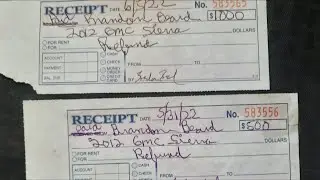 6/9/22 No. 583565
RECEIPT
Paid Brandon Beard $1000
2012 GMC Sierra DOLLARS
FOR RENT
FOR Refund
ACCOUNT
PAYMENT
BAL. DUE
CASH
CHECK
MONEY ORDER
CREDIT CARD
FROM TO
BY
RECEIPT 5/31/22 No. 583556
Paid Brandon Beard $500
2012 GMC Sierra DOLLARS
FOR RENT
FOR Refund
ACCOUNT
CASH